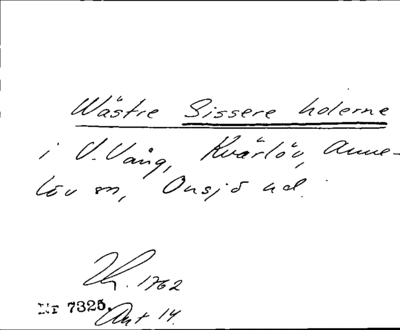 Wästre Sissere holerne
i V. Vång, Kvärlöv, Anne-
löv sn, Onsjö hd.
Lh. 1762
Nr 7325. Akt 14.